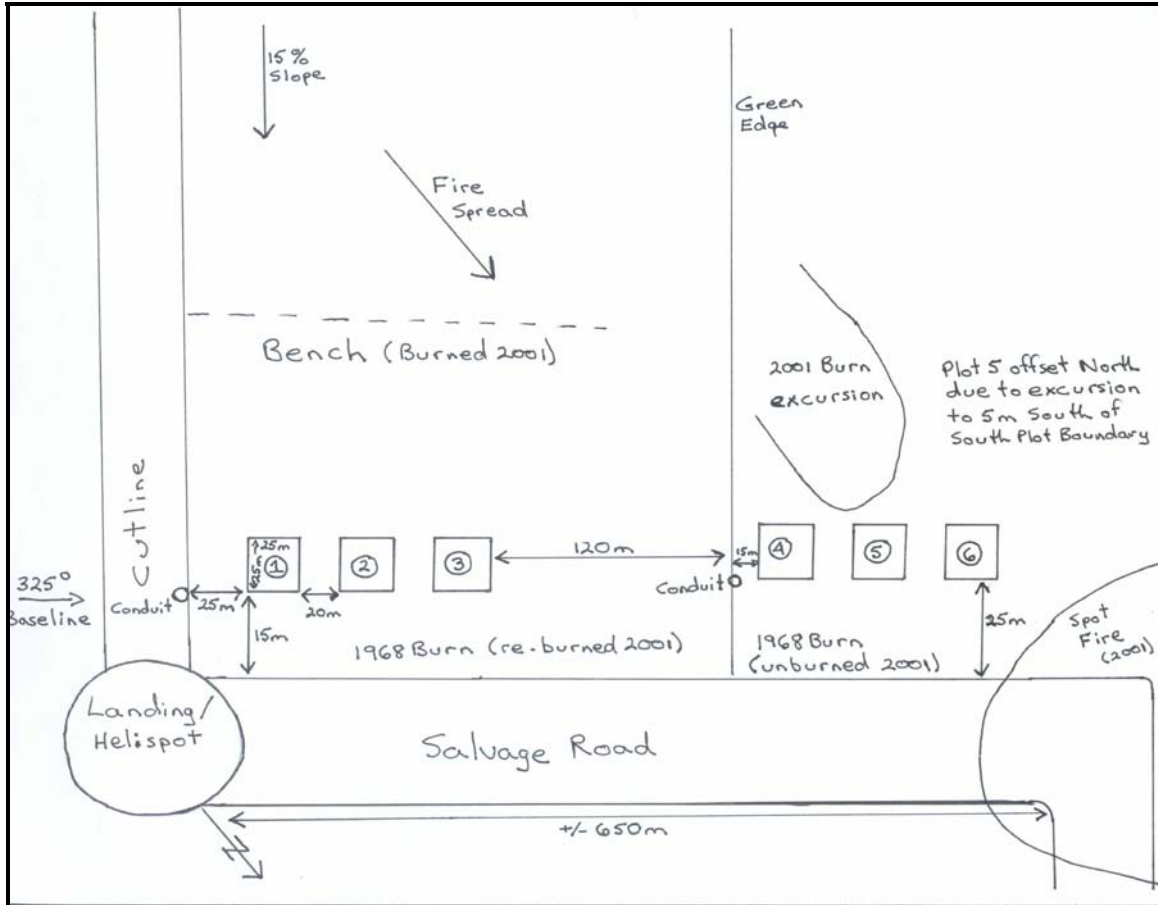 15%
Slope
Green
Edge
Fire
Spread
Bench (Burned 2001)
2001 Burn
excursion
Plot 5 offset North
due to excursion
to 5m South of
South Plot Boundary
Cutline
325°
Baseline
Conduit
25m
25m
1
25m
20m
15m
2
3
120m
15m
Conduit
4
5
6
25m
1968 Burn (re-burned 2001)
1968 Burn
(unburned 2001)
Spot
Fire
(2001)
Landing/
Helispot
Salvage Road
+/- 650m
N